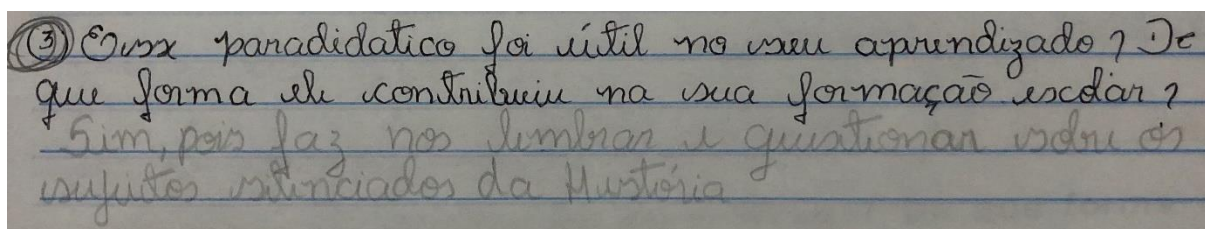 ③ Esse paradidatico foi útil no seu aprendizado? De
que forma ele contribuiu na sua formação escolar?
Sim, pois faz nos lembrar e questionar sobre os
sujeitos silenciados da História